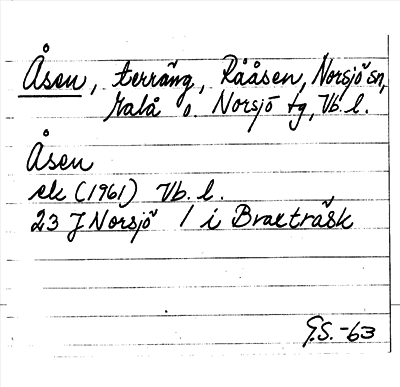 Åsen, terräng, Rååsen, Norsjö sn,
Malå o. Norsjö tg, Vb. l.
Åsen
ek (1961) Vb. l.
23 J Norsjö 1 i Braxträsk
G.S. -63